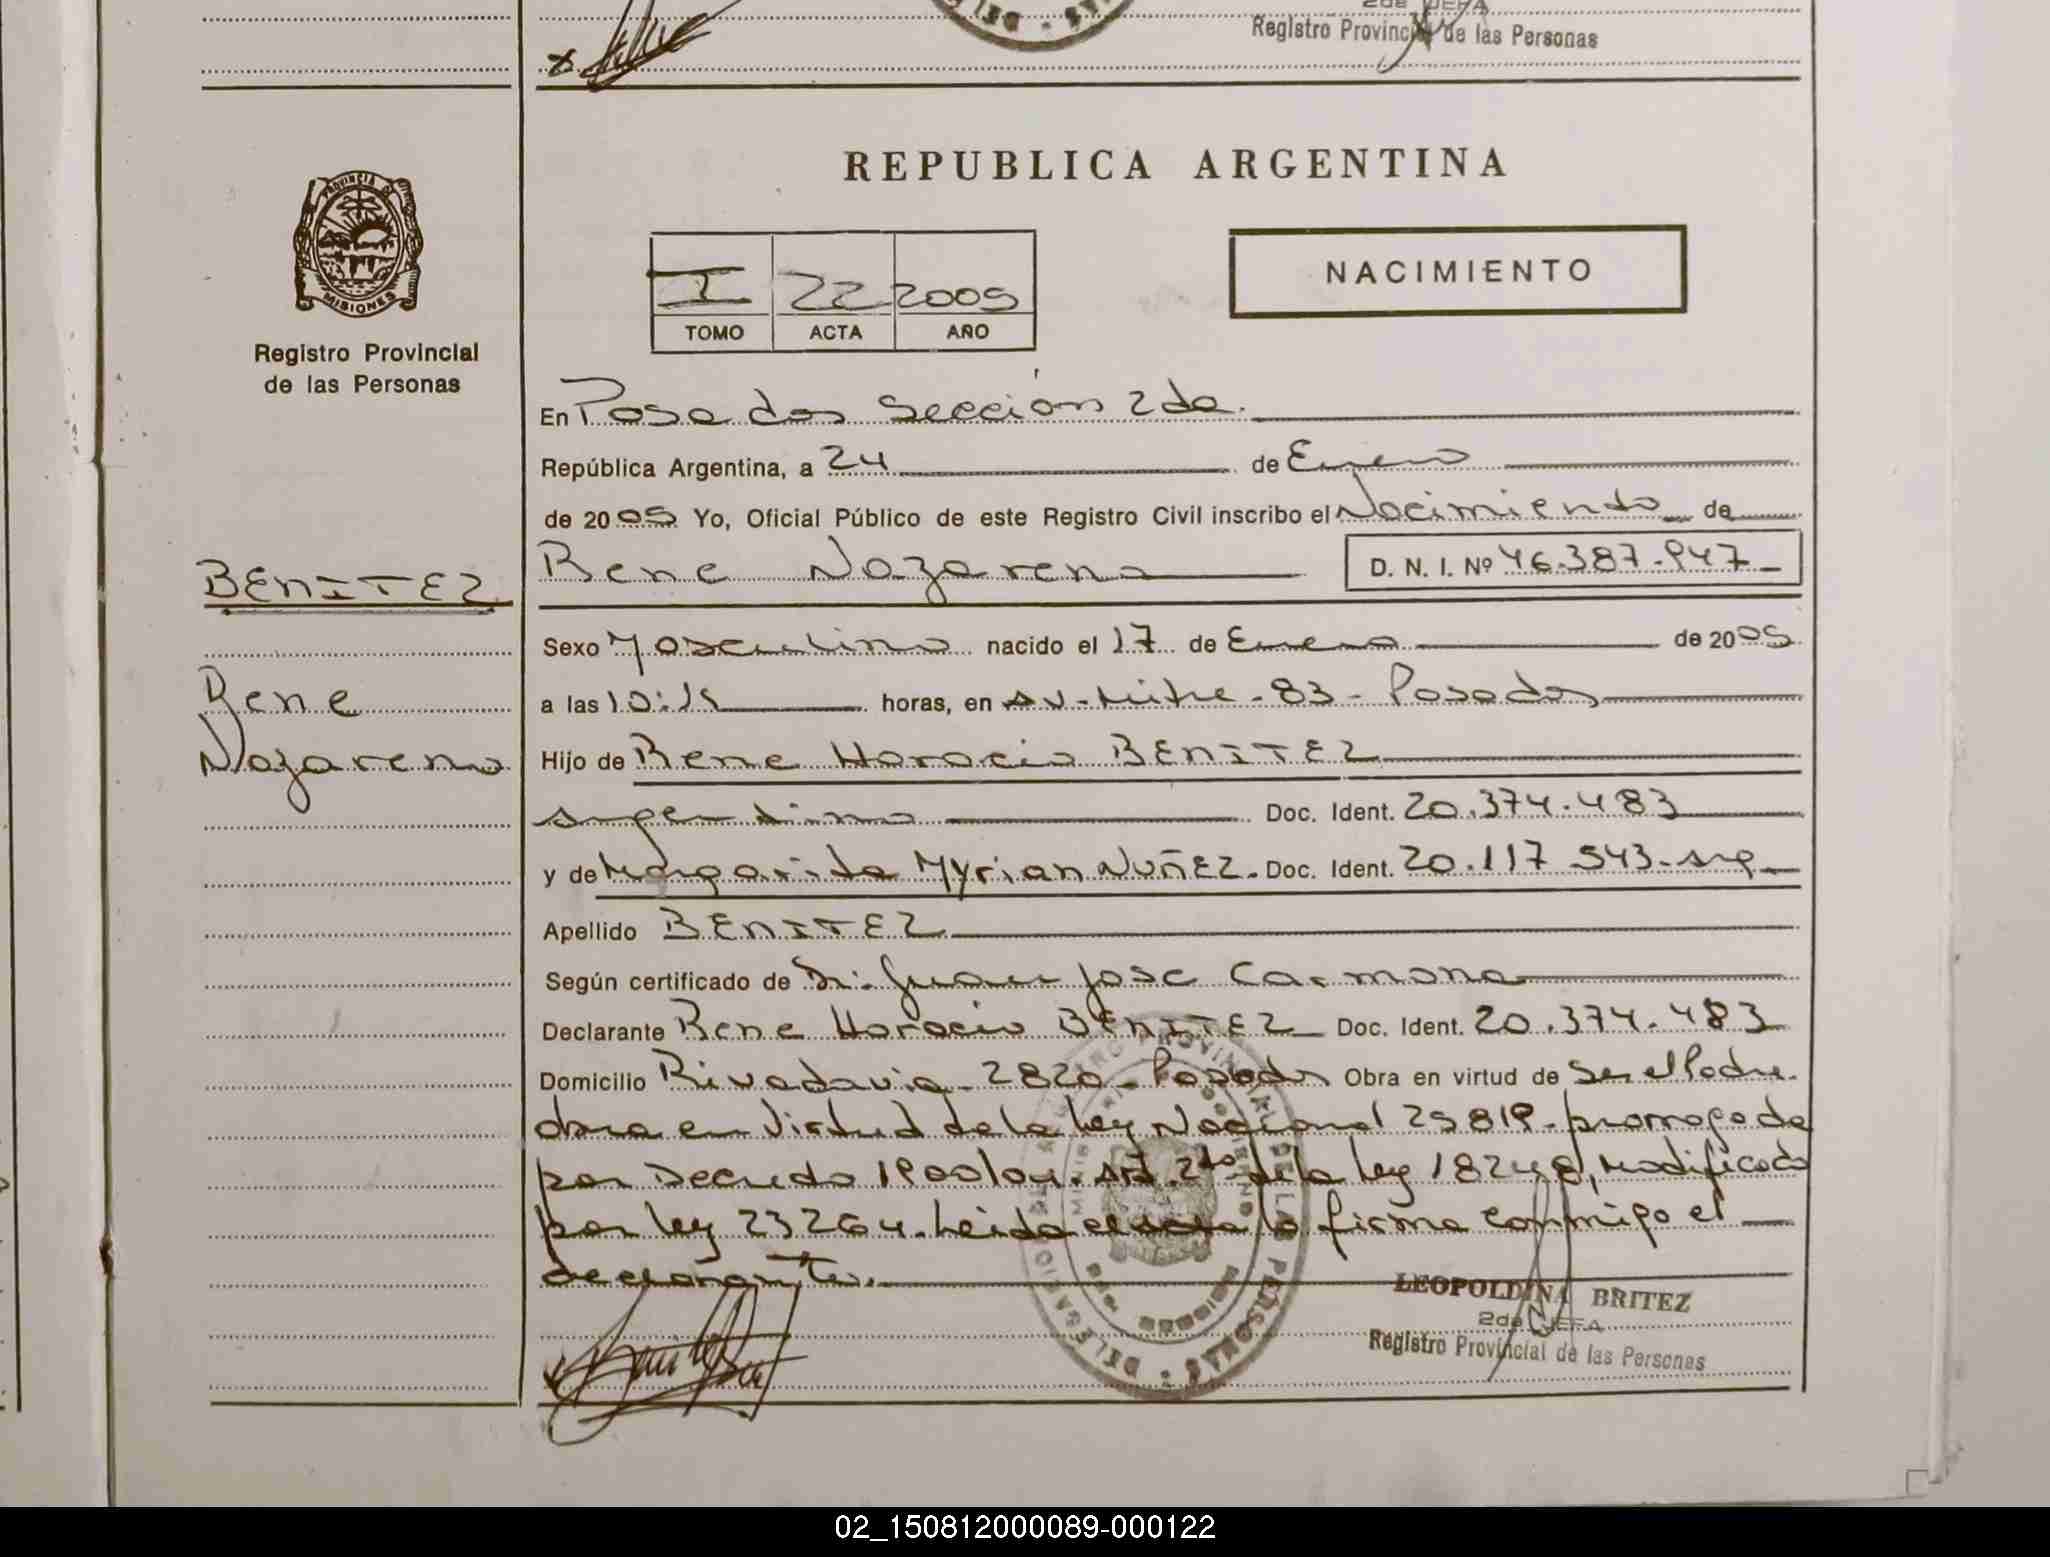 2da JEFA
Registro Provincial de las Personas
PROVINCIA DE
MISIONES
Registro Provincial
de las Personas
BENITEZ
Rene
Nazareno
REPUBLICA ARGENTINA
I 22 2005
TOMO ACTA AÑO
NACIMIENTO
En Posadas Sección 2da.
República Argentina, a 24 de Enero
de 2005 Yo, Oficial Público de este Registro Civil inscribo el Nacimiento de
Rene Nazareno D. N. I. Nº 46.387.947
Sexo Masculino nacido el 17 de Enero de 2005
a las 10:15 horas, en Av. Mitre - 83 - Posadas
Hijo de Rene Horacio BENITEZ
argentino Doc. Ident. 20.374.483
y de Margarita Myrian NUÑEZ. Doc. Ident. 20.117 543 - arg
Apellido BENITEZ
Según certificado de Dr. Juan Jose Carmona
Declarante Rene Horacio BENITEZ Doc. Ident. 20.374.483
Domicilio Rivadavia - 2820 - Posadas Obra en virtud de ser el Padre.
obra en virtud de la Ley Nacional 25819 - prorrogada
por Decreto 1900/04. Art. 2do de la ley 18248, modificado
por ley 23264. Leida el acta la firma conmigo el
declarante.
LEOPOLDINA BRITEZ
2da JEFA
Registro Provincial de las Personas
02_150812000089-000122